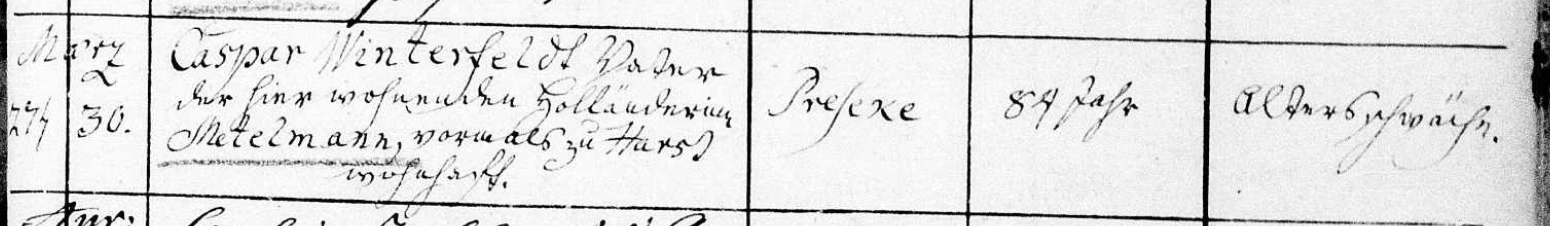 März
27t 30.
Caspar Winterfeldt Vater
der hier wohnenden Holländerinn
Metelmann, vormals zu Harst
wohnhaft.
Preseke
84 Jahr
Altersschwäche.
Apr: